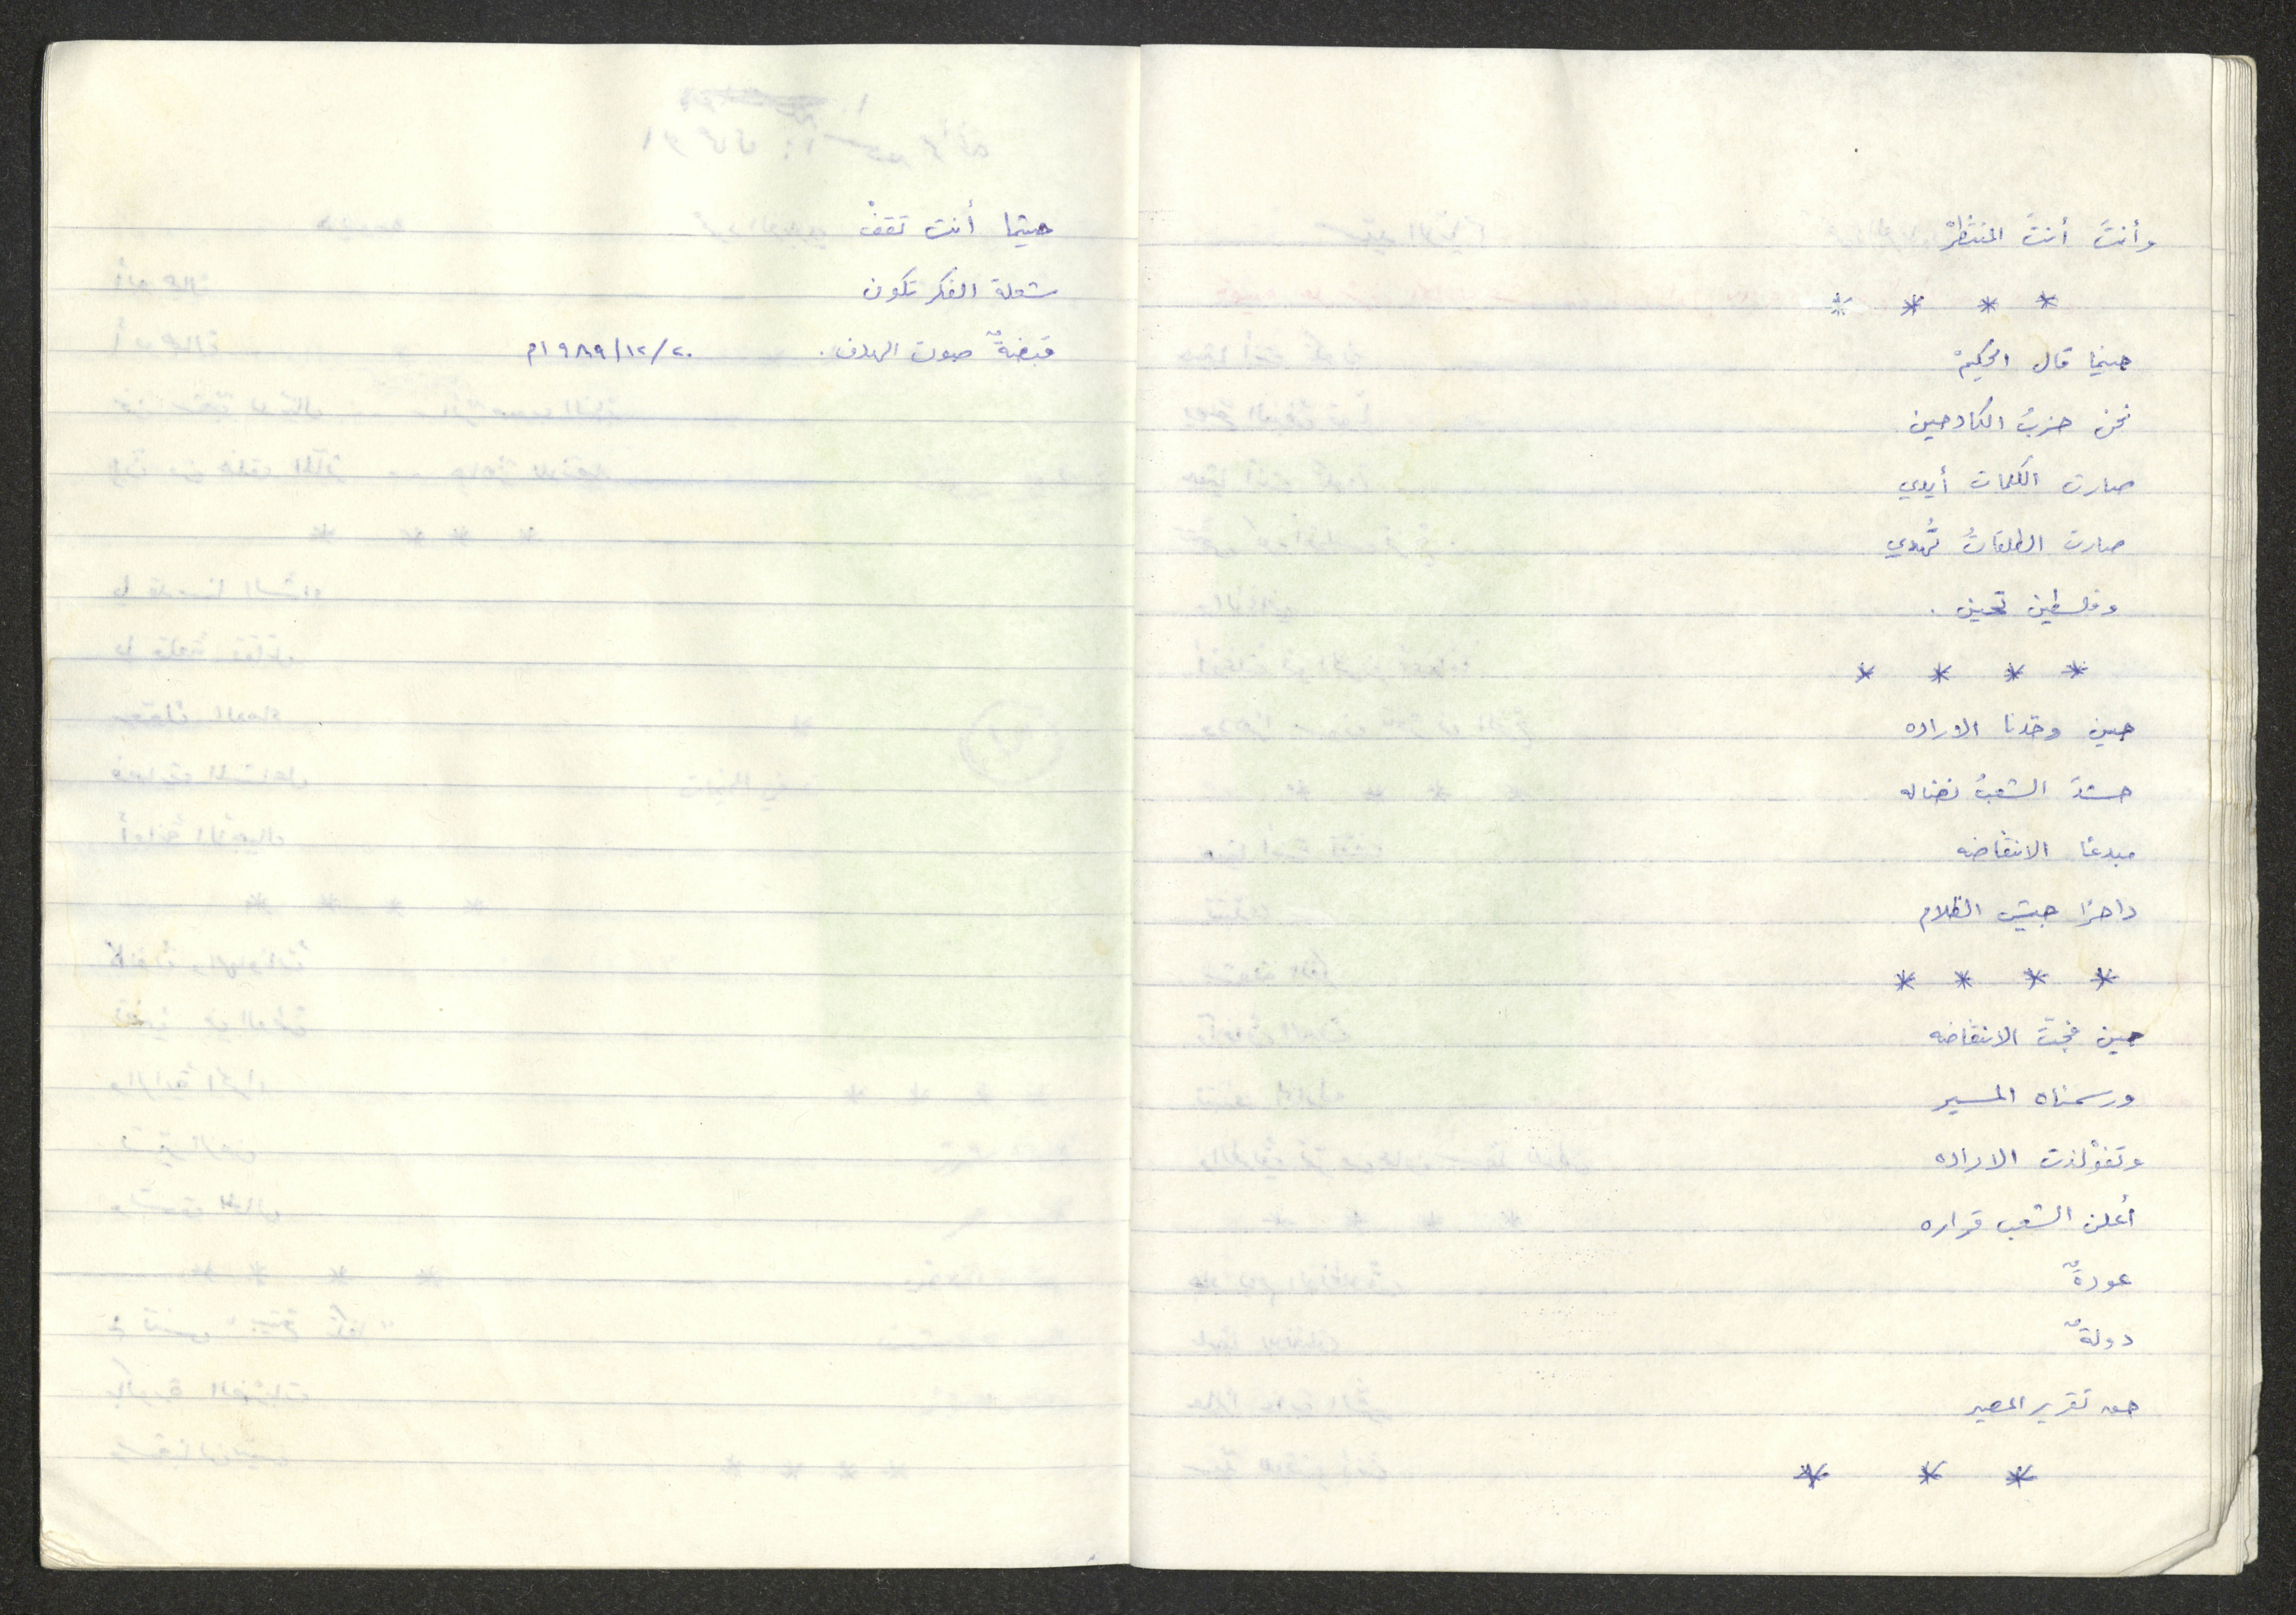 وأنتَ أنتَ المنتظرْ
* * * *
حينما قال الحكيمْ
نحن حزبُ الكادحين
صارت الكلمات أيدي
صارت الطلقاتُ تُهدي
وفلسطين تحين .
* * * *
حين وحّدنا الاراده
حشدَ الشعبُ نضاله
مبدعًا الانتفاضه
داحرًا جيش الظلام
* * * *
حين فجّرت الانتفاضه
ورسمناه المسير
وتفوْلذت الاراده
أعلن الشعب قراره
عودةٌ
دولةٌ
حق تقرير المصير
* * *
حيثما أنت تقفْ
شعلة الفكر تكون
قبضةٌ صوت الهدف . ٢٠/١٢/١٩٨٩م